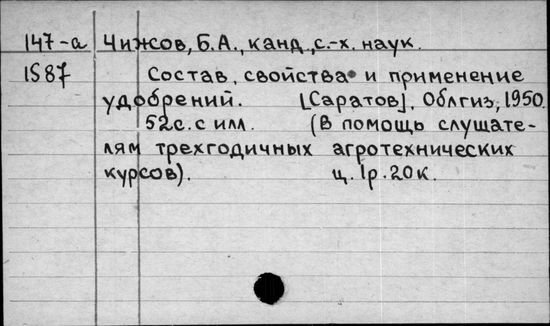 147-а Чижов, Б.А., канд. с.-х. наук.
1587 Состав, свойства и применение
удобрений. [Саратов], Облгиз, 1950.
52с. с илл. (В помощь слушате-
лям трехгодичных агротехнических
курсов). ц. 1р. 20к.